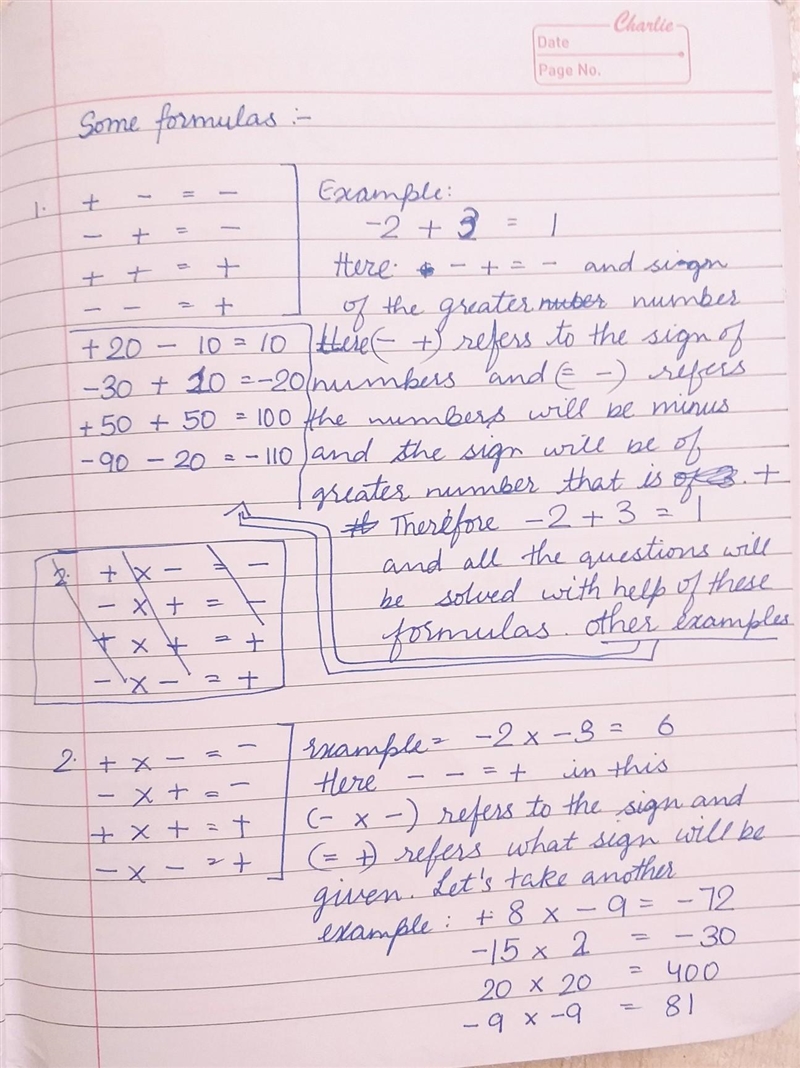 Charlie
Date
Page No.
Some formulas :-
1. + - = -
- + = -
+ + = +
- - = +
+20 - 10 = 10
-30 + 10 = -20
+50 + 50 = 100
-90 - 20 = -110
Example:
-2 + 3 = 1
Here: - + = - and sign
of the greater number
Here (- +) refers to the sign of
numbers and (= -) refers
the numbers will be minus
and the sign will be of
greater number that is +
Therefore -2 + 3 = 1
and all the questions will
be solved with help of these
formulas. other examples
2. + x - = -
- x + = -
+ x + = +
- x - = +
2. + x - = -
- x + = -
+ x + = +
- x - = +
example = -2 x -3 = 6
Here - - = + in this
(- x -) refers to the sign and
(= +) refers what sign will be
given. Let's take another
example: + 8 x - 9 = -72
-15 x 2 = -30
20 x 20 = 400
-9 x -9 = 81